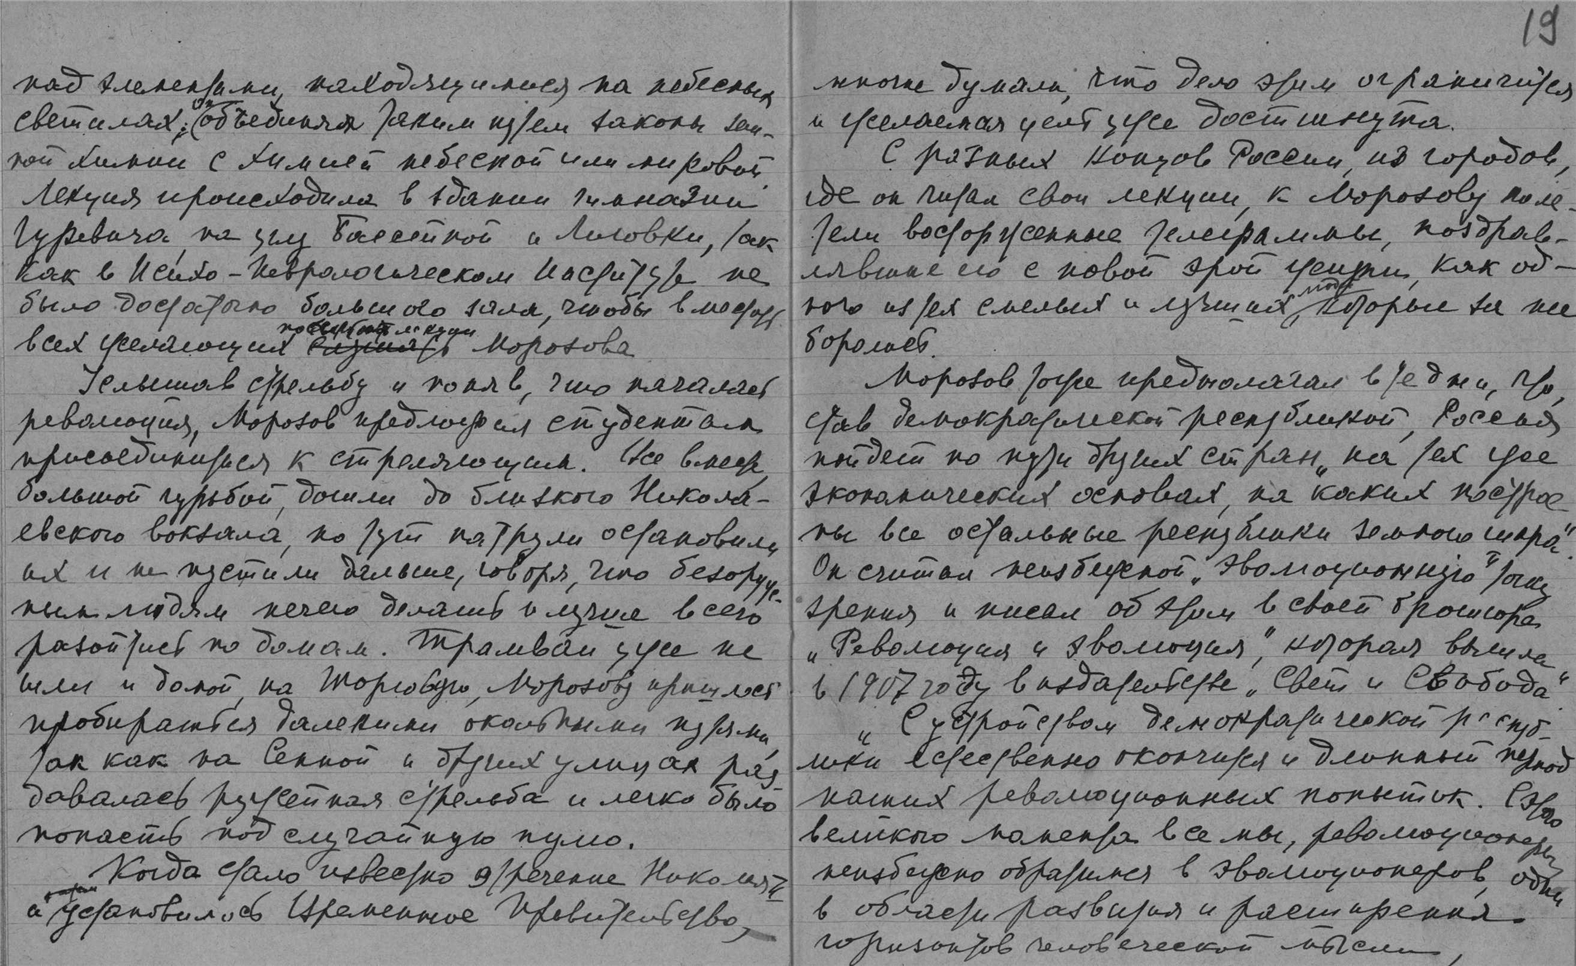 над элементами, находящимися на небесных
светилах, он объединял таким путем законы зем-
ной химии с химией небесной или мировой.
Лекция происходила в здании гимназии
Гуревича, на углу Бассейной и Лиговки, так
как в Психо-Неврологическом Институте не
было достаточно большого зала, чтобы вместить
всех желающих послушать лекции Морозова
Услышав стрельбу и поняв, что началась
революция, Морозов предложил студентам
присоединиться к стреляющим. Все вместе,
большой гурьбой, дошли до близкого Никола-
евского вокзала, но тут патрули остановили
их и не пустили дальше, говоря, что безоруж-
ным людям нечего делать и лучше всего
разойтись по домам. Трамваи уже не
шли и домой, на Торговую, Морозову пришлось
пробираться далекими окольными путями,
так как на Сенной и других улицах раз-
давалась ружейная стрельба и легко было
попасть под случайную пулю.
Когда стало известно отречение Николая II
и установилось Временное Правительство,
19
многие думали, что дело этим ограничится
и желаемая цель уже достигнута.
С разных концов России, из городов,
где он читал свои лекции, к Морозову поле-
тели восторженные телеграммы, поздрав-
лявшие его с новой эрой жизни, как од-
ного из тех смелых и лучших людей, которые за нее
боролись.
Морозов тоже предполагал в те дни, что,
став демократической республикой, Россия
пойдет по пути других стран „на тех же
экономических основах, на каких построе-
ны все остальные республики земного шара".
Он считал неизбежной „эволюционную" точку
зрения и писал об этом в своей брошюре
„Революция и эволюция", которая вышла
в 1907 году в издательстве „Свет и Свобода".
„С устройством демократической респуб-
лики естественно окончится и длинный период
наших революционных попыток. С этого
великого момента все мы, революционеры,
неизбежно обратимся в эволюционеров, одни
в области развития и расширения
горизонтов человеческой мысли,